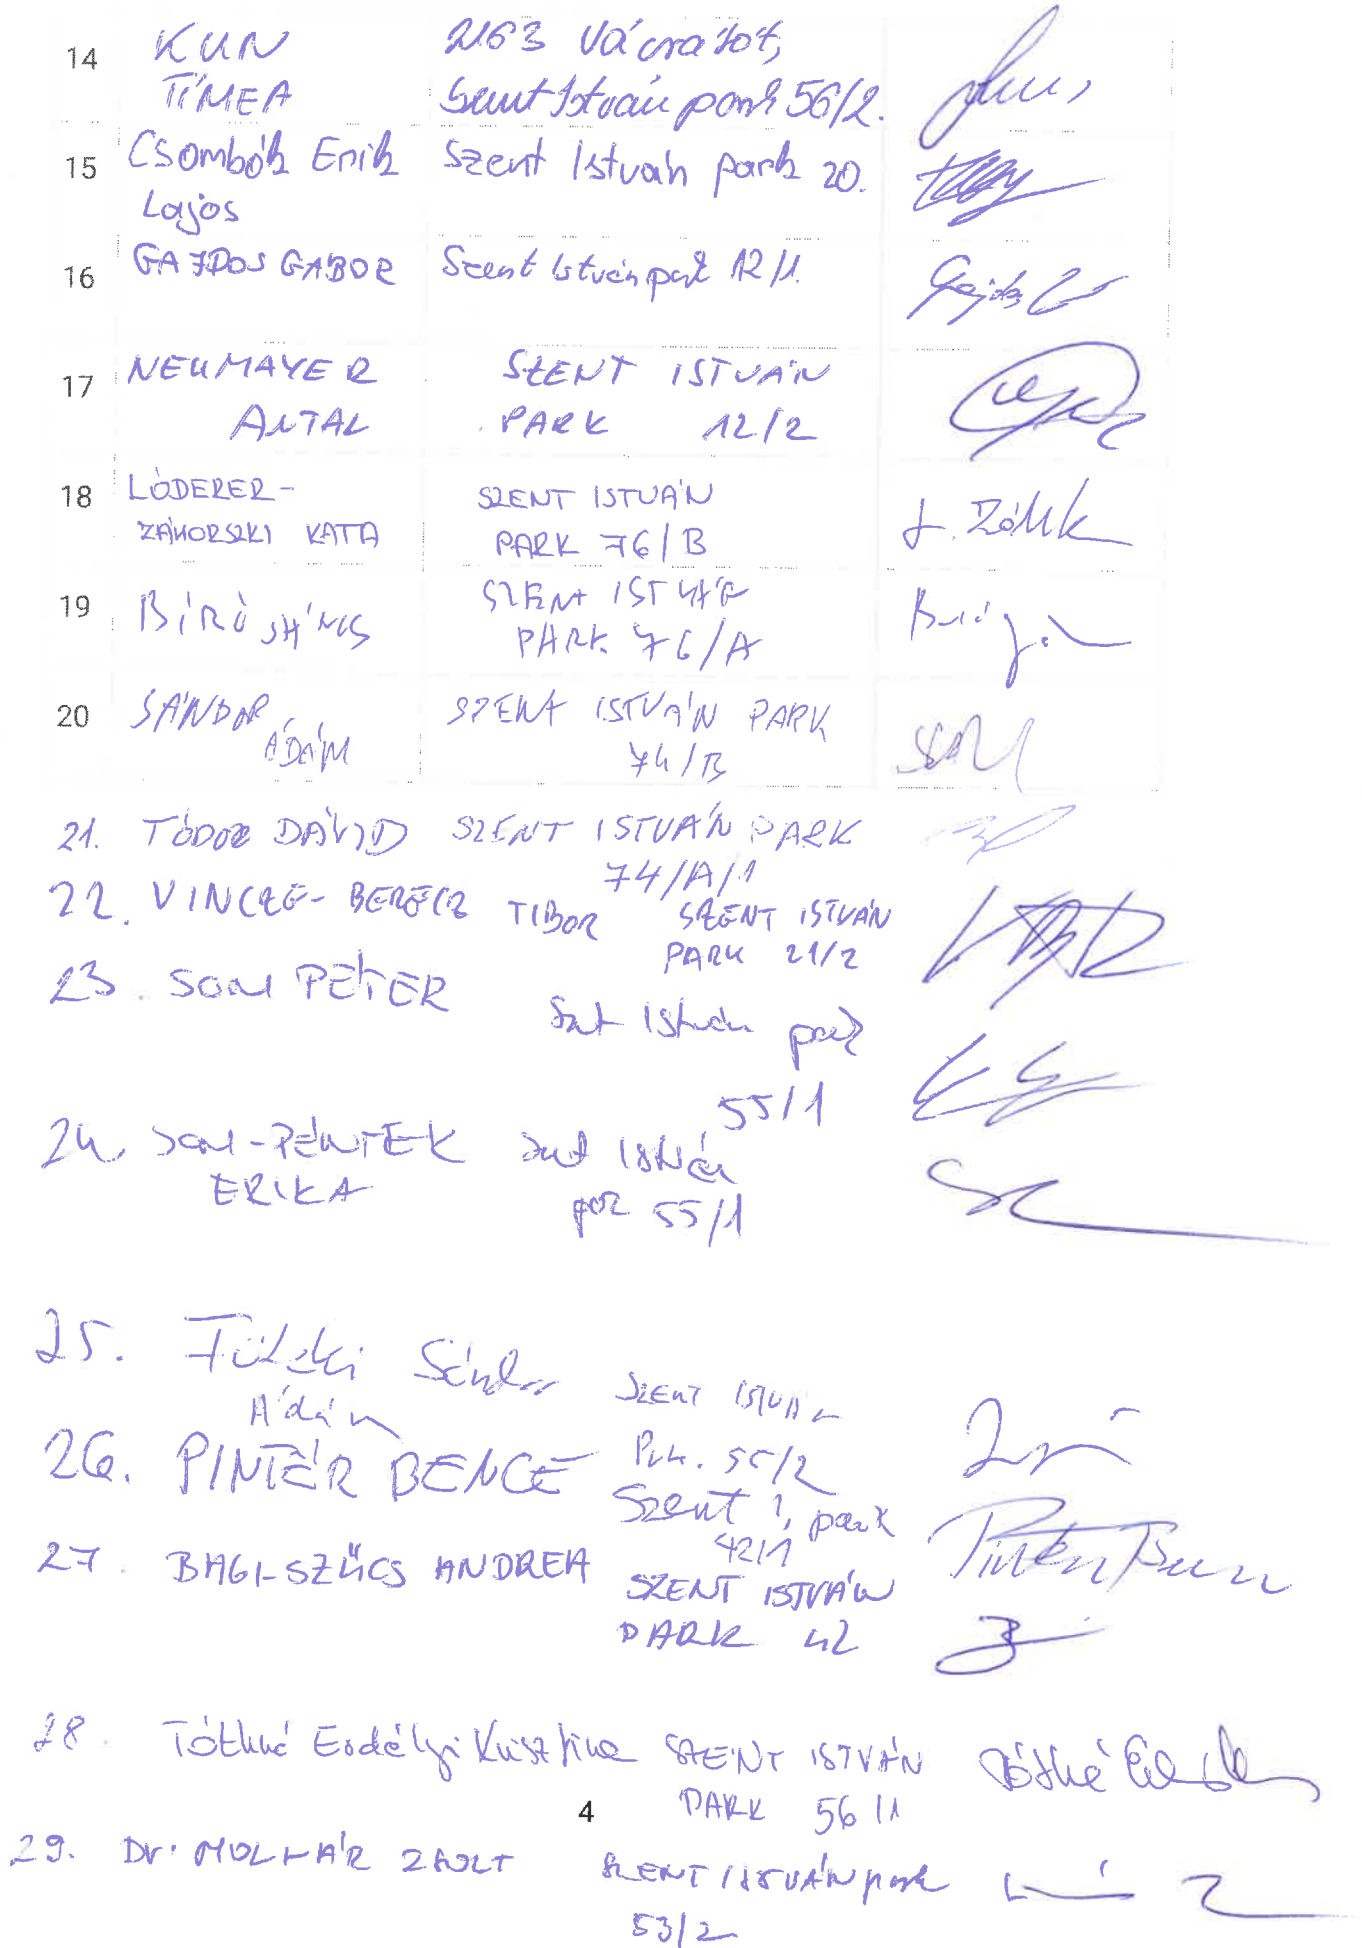 14 KUN 2163 Vácrátót,
TÍMEA Szent István park 56/2.
15 Csombók Erik Szent István park 20.
Lajos
16 GAJDOS GÁBOR Szent István park 12/1.
Gajdos
17 NEUMAYER SZENT ISTVÁN
ANTAL PARK 12/2
18 LÓDERER- SZENT ISTVÁN
ZÁHORSZKI KATA PARK 76/B
19 BÍRÓ JÁNOS SZENT ISTVÁN
PARK 76/A
20 SÁNDOR SZENT ISTVÁN PARK
ÁDÁM 74/B
21. TÓDOR DÁVID SZENT ISTVÁN PARK
74/A/1
22. VINCZE-BERECZ TIBOR SZENT ISTVÁN
PARK 21/2
23. SOM PÉTER Szent István park
55/1
24. SOM-PÉNTEK Szent István
ERIKA park 55/1
25. Füleki Sándor SZENT ISTVÁN
Ádám Prk. 55/2
26. PINTÉR BENCE Szent I. park
42/1
Pintér Bence
27. BAGI-SZŰCS ANDREA SZENT ISTVÁN
PARK 42
28. Tóthné Erdélyi Krisztina SZENT ISTVÁN
PARK 56/1
Tóthné
4
29. Dr. MOLNÁR ZSOLT SZENT ISTVÁN park
53/2